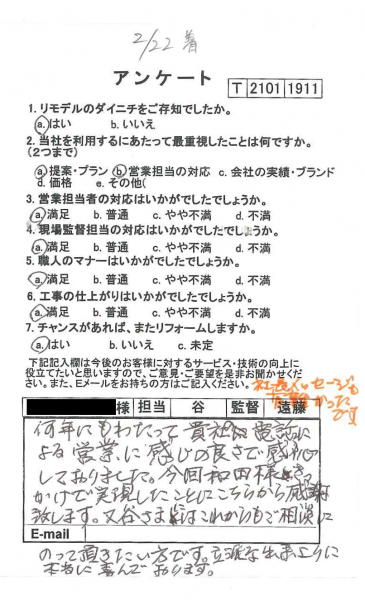 2/22 着
アンケート
T 2101 1911
1. リモデルのダイニチをご存知でしたか。
a. はい b. いいえ
2. 当社を利用するにあたって最重視したことは何ですか。
(2つまで)
a. 提案・プラン b. 営業担当の対応 c. 会社の実績・ブランド
d. 価格 e. その他(
3. 営業担当者の対応はいかがでしたでしょうか。
a. 満足 b. 普通 c. やや不満 d. 不満
4. 現場監督担当の対応はいかがでしたでしょうか。
a. 満足 b. 普通 c. やや不満 d. 不満
5. 職人のマナーはいかがでしたでしょうか。
a. 満足 b. 普通 c. やや不満 d. 不満
6. 工事の仕上がりはいかがでしたでしょうか。
a. 満足 b. 普通 c. やや不満 d. 不満
7. チャンスがあれば、またリフォームしますか。
a. はい b. いいえ c. 未定
下記記入欄は今後のお客様に対するサービス・技術の向上に
役立てたいと思いますので、ご意見・ご要望を是非お聞かせくだ
さい。また、Eメールをお持ちの方はご記入ください。
社長メッセージも
かった
です
様 担当 谷 監督 遠藤
何年にもわたって貴社は電話に
よる営業に感じの良さで感心
しておりました。今回和田様がきっ
かけで実現したことにこちらから感謝
致します。又谷さまにはこれからもご相談に
E-mail
のって頂きたい方です。立派な出来上りに
本当に喜んでおります。